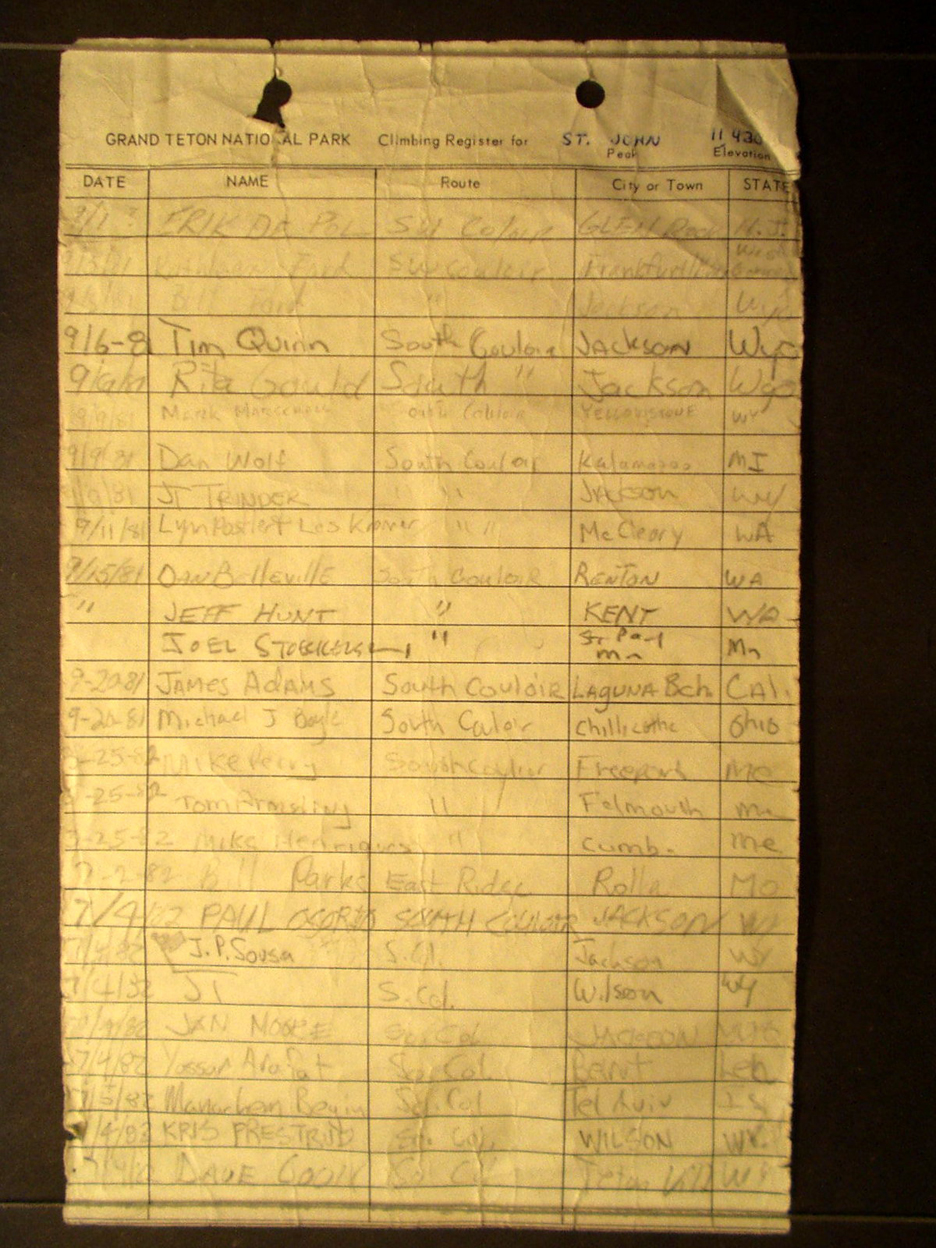 GRAND TETON NATIONAL PARK Climbing Register for ST. JOHN 11430
Peak Elevation
DATE NAME Route City or Town STATE
ERIK SW Coloir GLEN Rock N.J.
Kathleen Ford SW Couloir Frankfurt
Bill Ford " Jackson Wyo
9/6-8 Tim Quinn South Couloir JACKSON Wyo
Rita Gould South " Jackson Wyo
9/9/81 Mark South Couloir YELLOWSTONE WY
9/9/81 Dan Wolf South Couloir Kalamazoo MI
9/9/81 JT TRINDER " " JACKSON WY
9/11/81 Lynn Les Kramer " " McCleary WA
9/15/81 Dan Belleville South Couloir RENTON WA
" JEFF HUNT " KENT WA
JOEL " St. Paul
mn Mn
9-20-81 JAMES ADAMS South Couloir LAGUNA Bch. CAL.
9-20-81 Michael J Boyle South Culoir Chillicothe Ohio
-25-82 Mike Perry South Freeport Me
-25-82 Tom " Felmouth me
-25-82 Mike Henriques " Cumb. me
7-2-82 Bill Parks East Ridge Rolla MO
7/4/82 PAUL OSORIO SOUTH COULOIR JACKSON WY
7/4/82 J.P. Sousa S. Cl. Jackson WY
7/4/82 JT S. Col. Wilson WY
JAN MOORE So. Col JACKSON WYO
7/4/82 Yassar Arafat So. Col. Beirut Leb
7/5/82 Manachem Begin So. Col Tel Aviv Is
/4/82 KRIS PRESTRUD So. Col. WILSON WY.
DAVE So Col Teton Vill WY